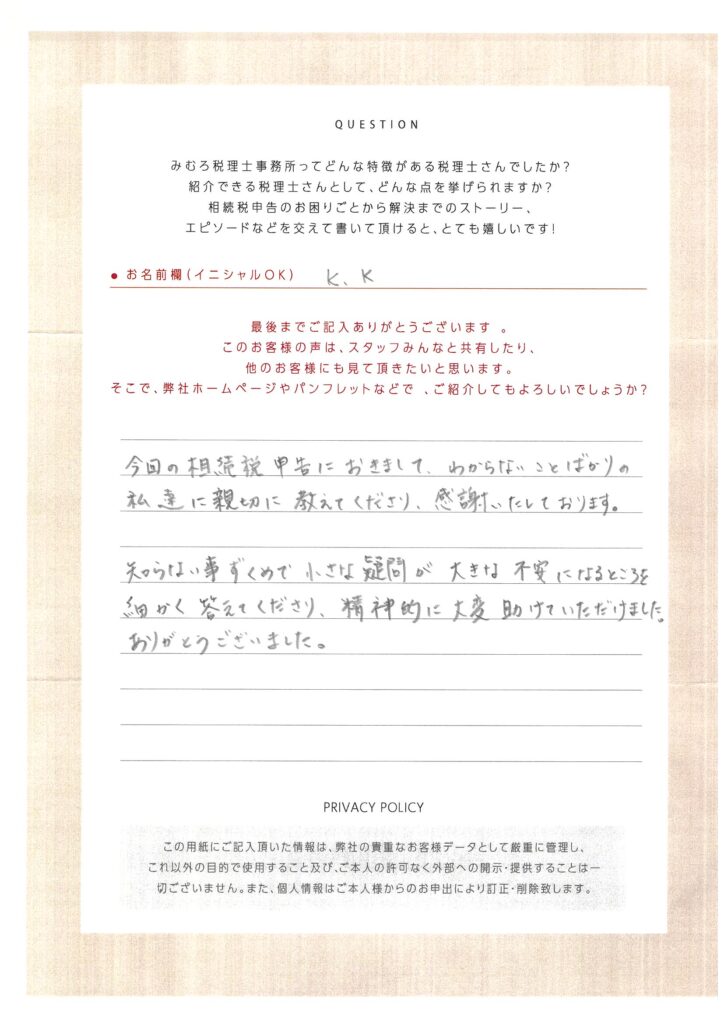 QUESTION
みむろ税理士事務所ってどんな特徴がある税理士さんでしたか?
紹介できる税理士さんとして、どんな点を挙げられますか?
相続税申告のお困りごとから解決までのストーリー、
エピソードなどを交えて書いて頂けると、とても嬉しいです!
● お名前欄(イニシャルOK) K、K
最後までご記入ありがとうございます 。
このお客様の声は、スタッフみんなと共有したり、
他のお客様にも見て頂きたいと思います。
そこで、弊社ホームページやパンフレットなどで 、ご紹介してもよろしいでしょうか?
今回の相続税申告におきまして、わからないことばかりの
私達に親切に教えてくださり、感謝いたしております。
知らない事ずくめで小さな疑問が大きな不安になるところを
細かく答えてくださり、精神的に大変助けていただけました。
ありがとうございました。
PRIVACY POLICY
この用紙にご記入頂いた情報は、弊社の貴重なお客様データとして厳重に管理し、
これ以外の目的で使用すること及び、ご本人の許可なく外部への開示・提供することは一
切ございません。また、個人情報はご本人様からのお申出により訂正・削除致します。